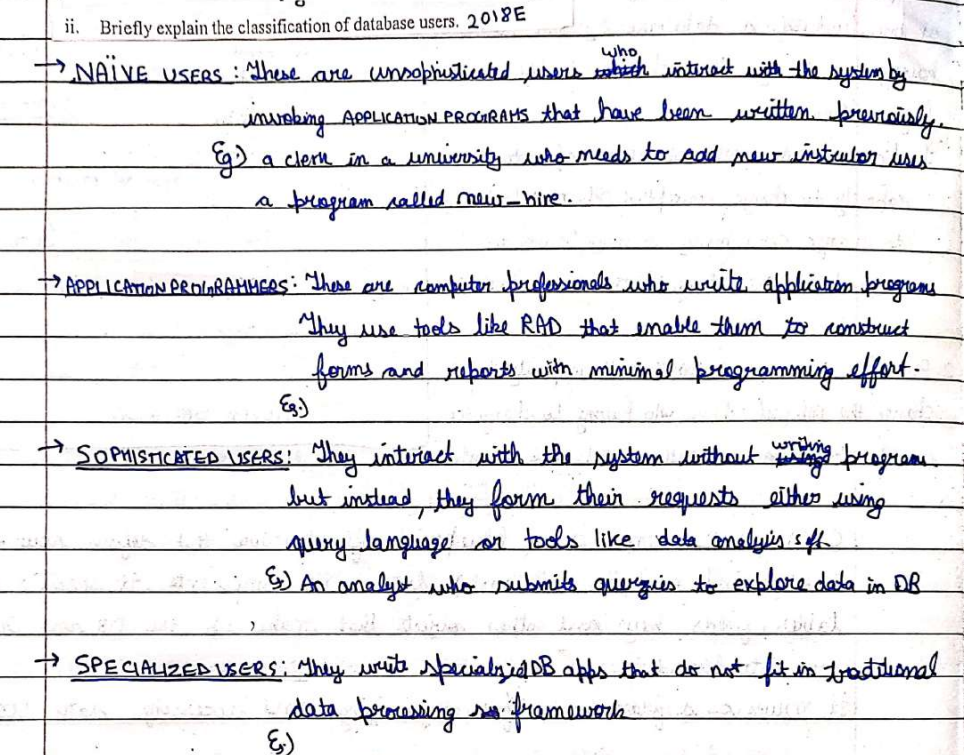 ii. Briefly explain the classification of database users. 2018E
→ NAÏVE USERS : These are unsophisticated users who interact with the system by
invoking APPLICATION PROGRAMS that have been written previously.
Eg:) a clerk in a university who needs to add new instructor uses
a program called new_hire.
→ APPLICATION PROGRAMMERS: These are computer professionals who write application programs
They use tools like RAD that enable them to construct
forms and reports with minimal programming effort.
Eg:)
→ SOPHISTICATED USERS: They interact with the system without writing program
but instead, they form their requests either using
query language or tools like data analysis sft.
Eg) An analyst who submits quergies to explore data in DB
→ SPECIALIZED USERS: They write specialzied DB apps that do not fit in traditional
data processing framework
Eg.)